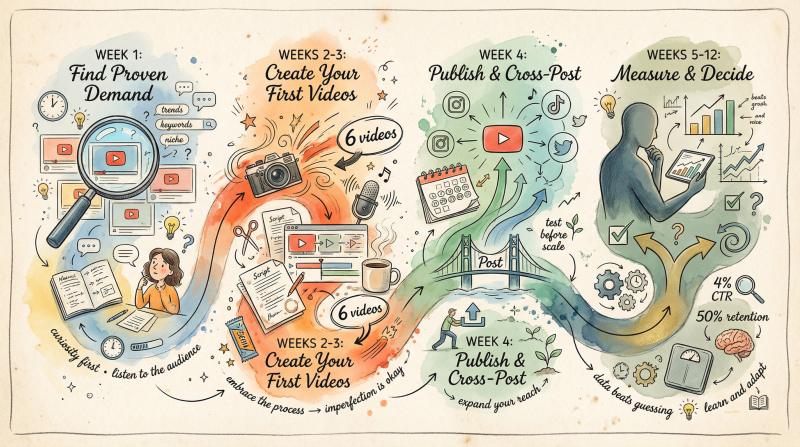 WEEK 1:
Find Proven
Demand
trends
keywords
niche
curiosity first • listen to the audience
WEEKS 2-3:
Create Your
First Videos
6 videos
Script
Script
6 videos
WEEKS 2-3:
Create Your
First Videos
embrace the process → imperfection is okay
WEEK 4:
Publish & Cross-Post
test
before
scale
Post
WEEK 4:
Publish &
Cross-Post
expand your reach
WEEKS 5-12:
Measure & Decide
beats
and
4%
CTR
50% retention
data beats guessing
learn and adapt